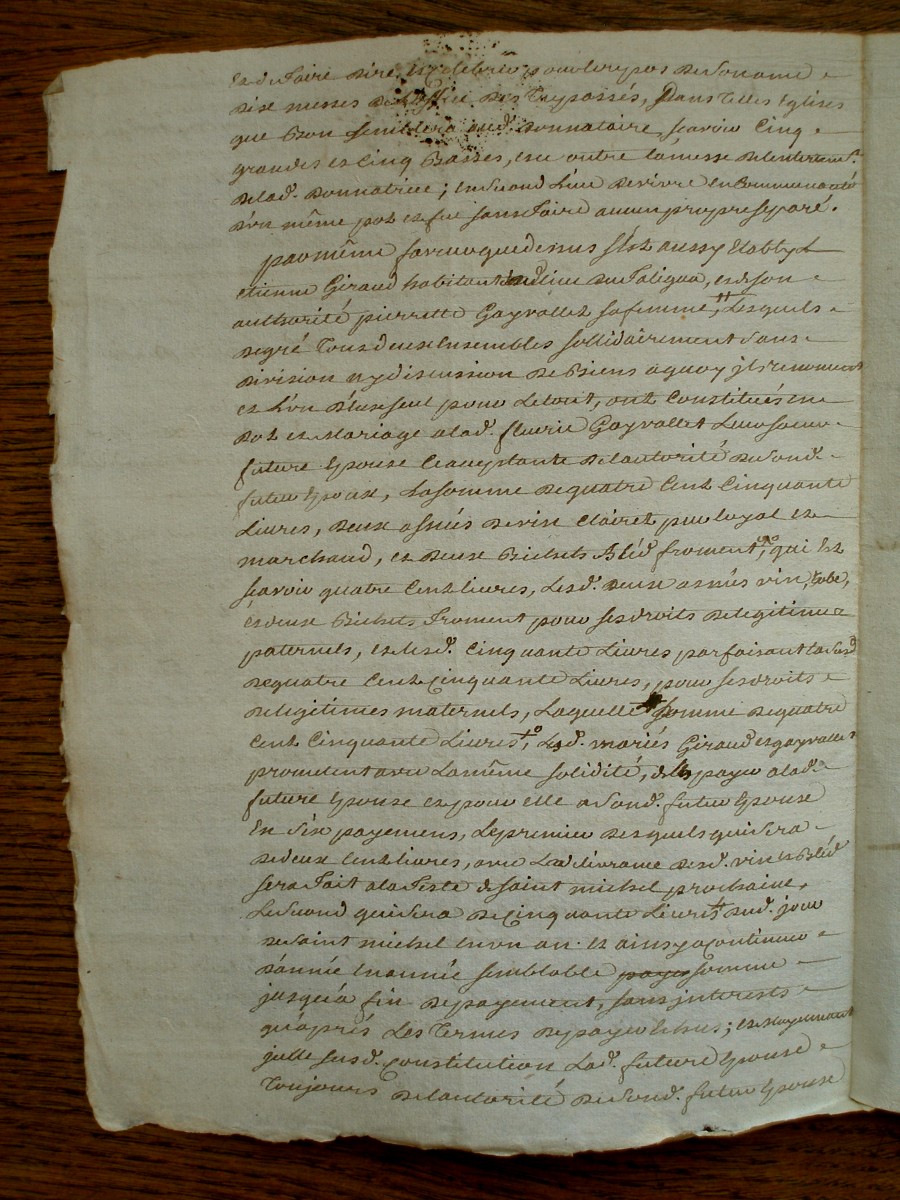 et de faire dire et celebrer pour le repos de son ame
dixe messes de l'office des Trepassés, dans telles Eglises
que bon semblera aud. donnataire, scavoir cinq
grandes et cinq basses, en outre la messe de l'enterremt.
de lad. donnatrice; en second lieu de vivre en communauté
d'un même pot et feu sans faire aucun propre separé.
par même farvuo que dessus s'est aussy etably
etienne Giraud habitant aud. lieu du, et de son
authorité pierrette Gayvallet sa femme, Lesquels
de gré tous deux ensembles sollidairement sans
division ny discussion de biens a quoy jls renoncent
et l'un d'eux seul pour le tout, ont constitués en
dot et mariage a lad. fleurie Gayvallet leur soeur
future Epouse l'acceptante de l'autorité de son d.
futur Epoux, la somme de quatre cent cinquante
Livres, deux asnées de vin clairet pur loyal et
marchand, et deux bichets bled froment, qui est
scavoir quatre cent livres, lesd. deux asnées vin, robe,
et deux bichets froment pour ses droits de legitime
paternels, et lesd. cinquante livres parfaisant la susd.
de quatre cent cinquante livres, pour ses droits
de legitimes maternels, laquelle somme de quatre
cent cinquante Livres, lesd. mariés Giraud et gayvallet
promettent avec la même solidité, de payer a lad.
future Epouse et pour elle a son d. futur Epoux
En six payemens, le premier desquels qui sera
de deux cent livres, avec la délivrance desd. vin et bled
sera fait a la feste de saint michel prochaine,
Le second qui sera de cinquante livres dud. jour
de saint michel en un an et ainsy a continuer
d'année en année semblable paye somme
jusqu'a fin de payement, sans interests
qu'après les termes de payer Echus; et moyennant
jcelle susd. constitution lad. future Epouse
Toujours de l'autorité de son d. futur Epoux